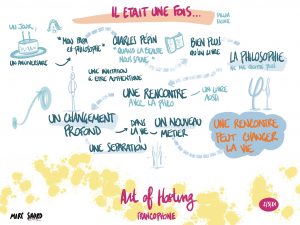 IL ETAIT UNE FOIS...
UN JOUR,
UN ANNIVERSAIRE
"MON PAPA
ET PHILOSOPHE"
CHARLES PEPIN
"QUAND LA BEAUTE
NOUS SAUVE"
BIEN PLUS
QU'UN LIVRE
LA PHILOSOPHIE
UNE INVITATION
A ETRE AUTHENTIQUE
UNE RENCONTRE
AVEC LA PHILO
UN LIVRE
AUSSI
UN CHANGEMENT
PROFOND
DANS
LA VIE
UN NOUVEAU
METIER
UNE SEPARATION
UNE RENCONTRE
PEUT CHANGER
LA VIE
Art of Hosting
FRANCOPHONE